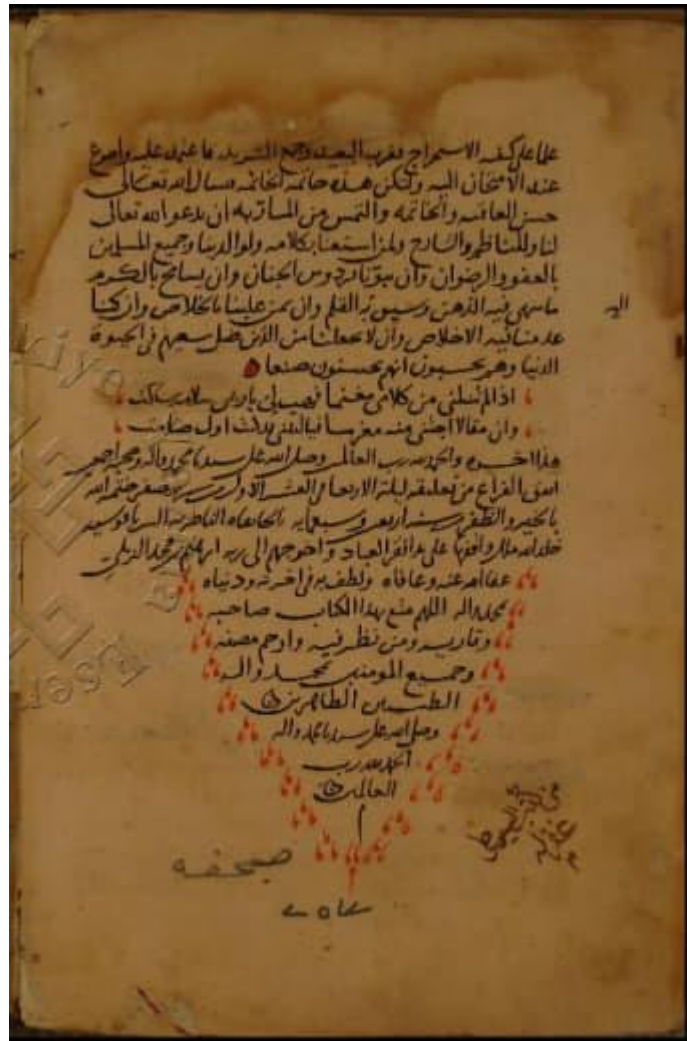 على كيفية الاستخراج تقريب البعيد وجمع الشريد ما عليه
عند الامتحان اليه ولتكن هذه خاتمة الخاتمة نسال الله تعالى
حسن العاقبه والخاتمه والتمس من المسار به ان يدعو الله تعالى
لنا وللناظم والشارح ولمن استعنا بكلامه ولوالدينا وجميع المسلمين
بالعفو والرضوان وان يبوئنا فردوس الجنان وان يسامح بالكرم
ما سهى فيه الذهن وسبق به القلم وان يمن علينا بالخلاص وان كنا
عدمنا فيه الاخلاص وان لا يجعلنا من الذين ضل سعيهم في الحيوة
الدنيا وهم يحسبون انهم يحسنون صنعا
اليه
اذا لم من كلامى مغنما
وان مقالا منه مغرما اول صامت
هذا اخره والحمد لله رب العالمين وصلى الله على سيدنا محمد واله وصحبه اجمعين
اتفق الفراغ من تعليقه ليلة الاربعا العشر الاول من شهر صفر ختم الله
بالخير والظفر سنة اربعين وسبعمايه بالخانقاه الناصرية
خلد الله ملك واقفها على يد افقر العباد واحوجهم الى ربه ابراهيم بن محمد
عفا الله عنه وعافاه ولطف به في اخرته ودنياه
بمحمد واله اللهم متع بهذا الكتاب صاحبه
وقاريه ومن نظر فيه وارحم مصنفه
وجميع المومنين بمحمد واله
الطيبين الطاهرين
وصلى الله على سيدنا محمد واله
الحمد لله رب
العالمين
صحيفه